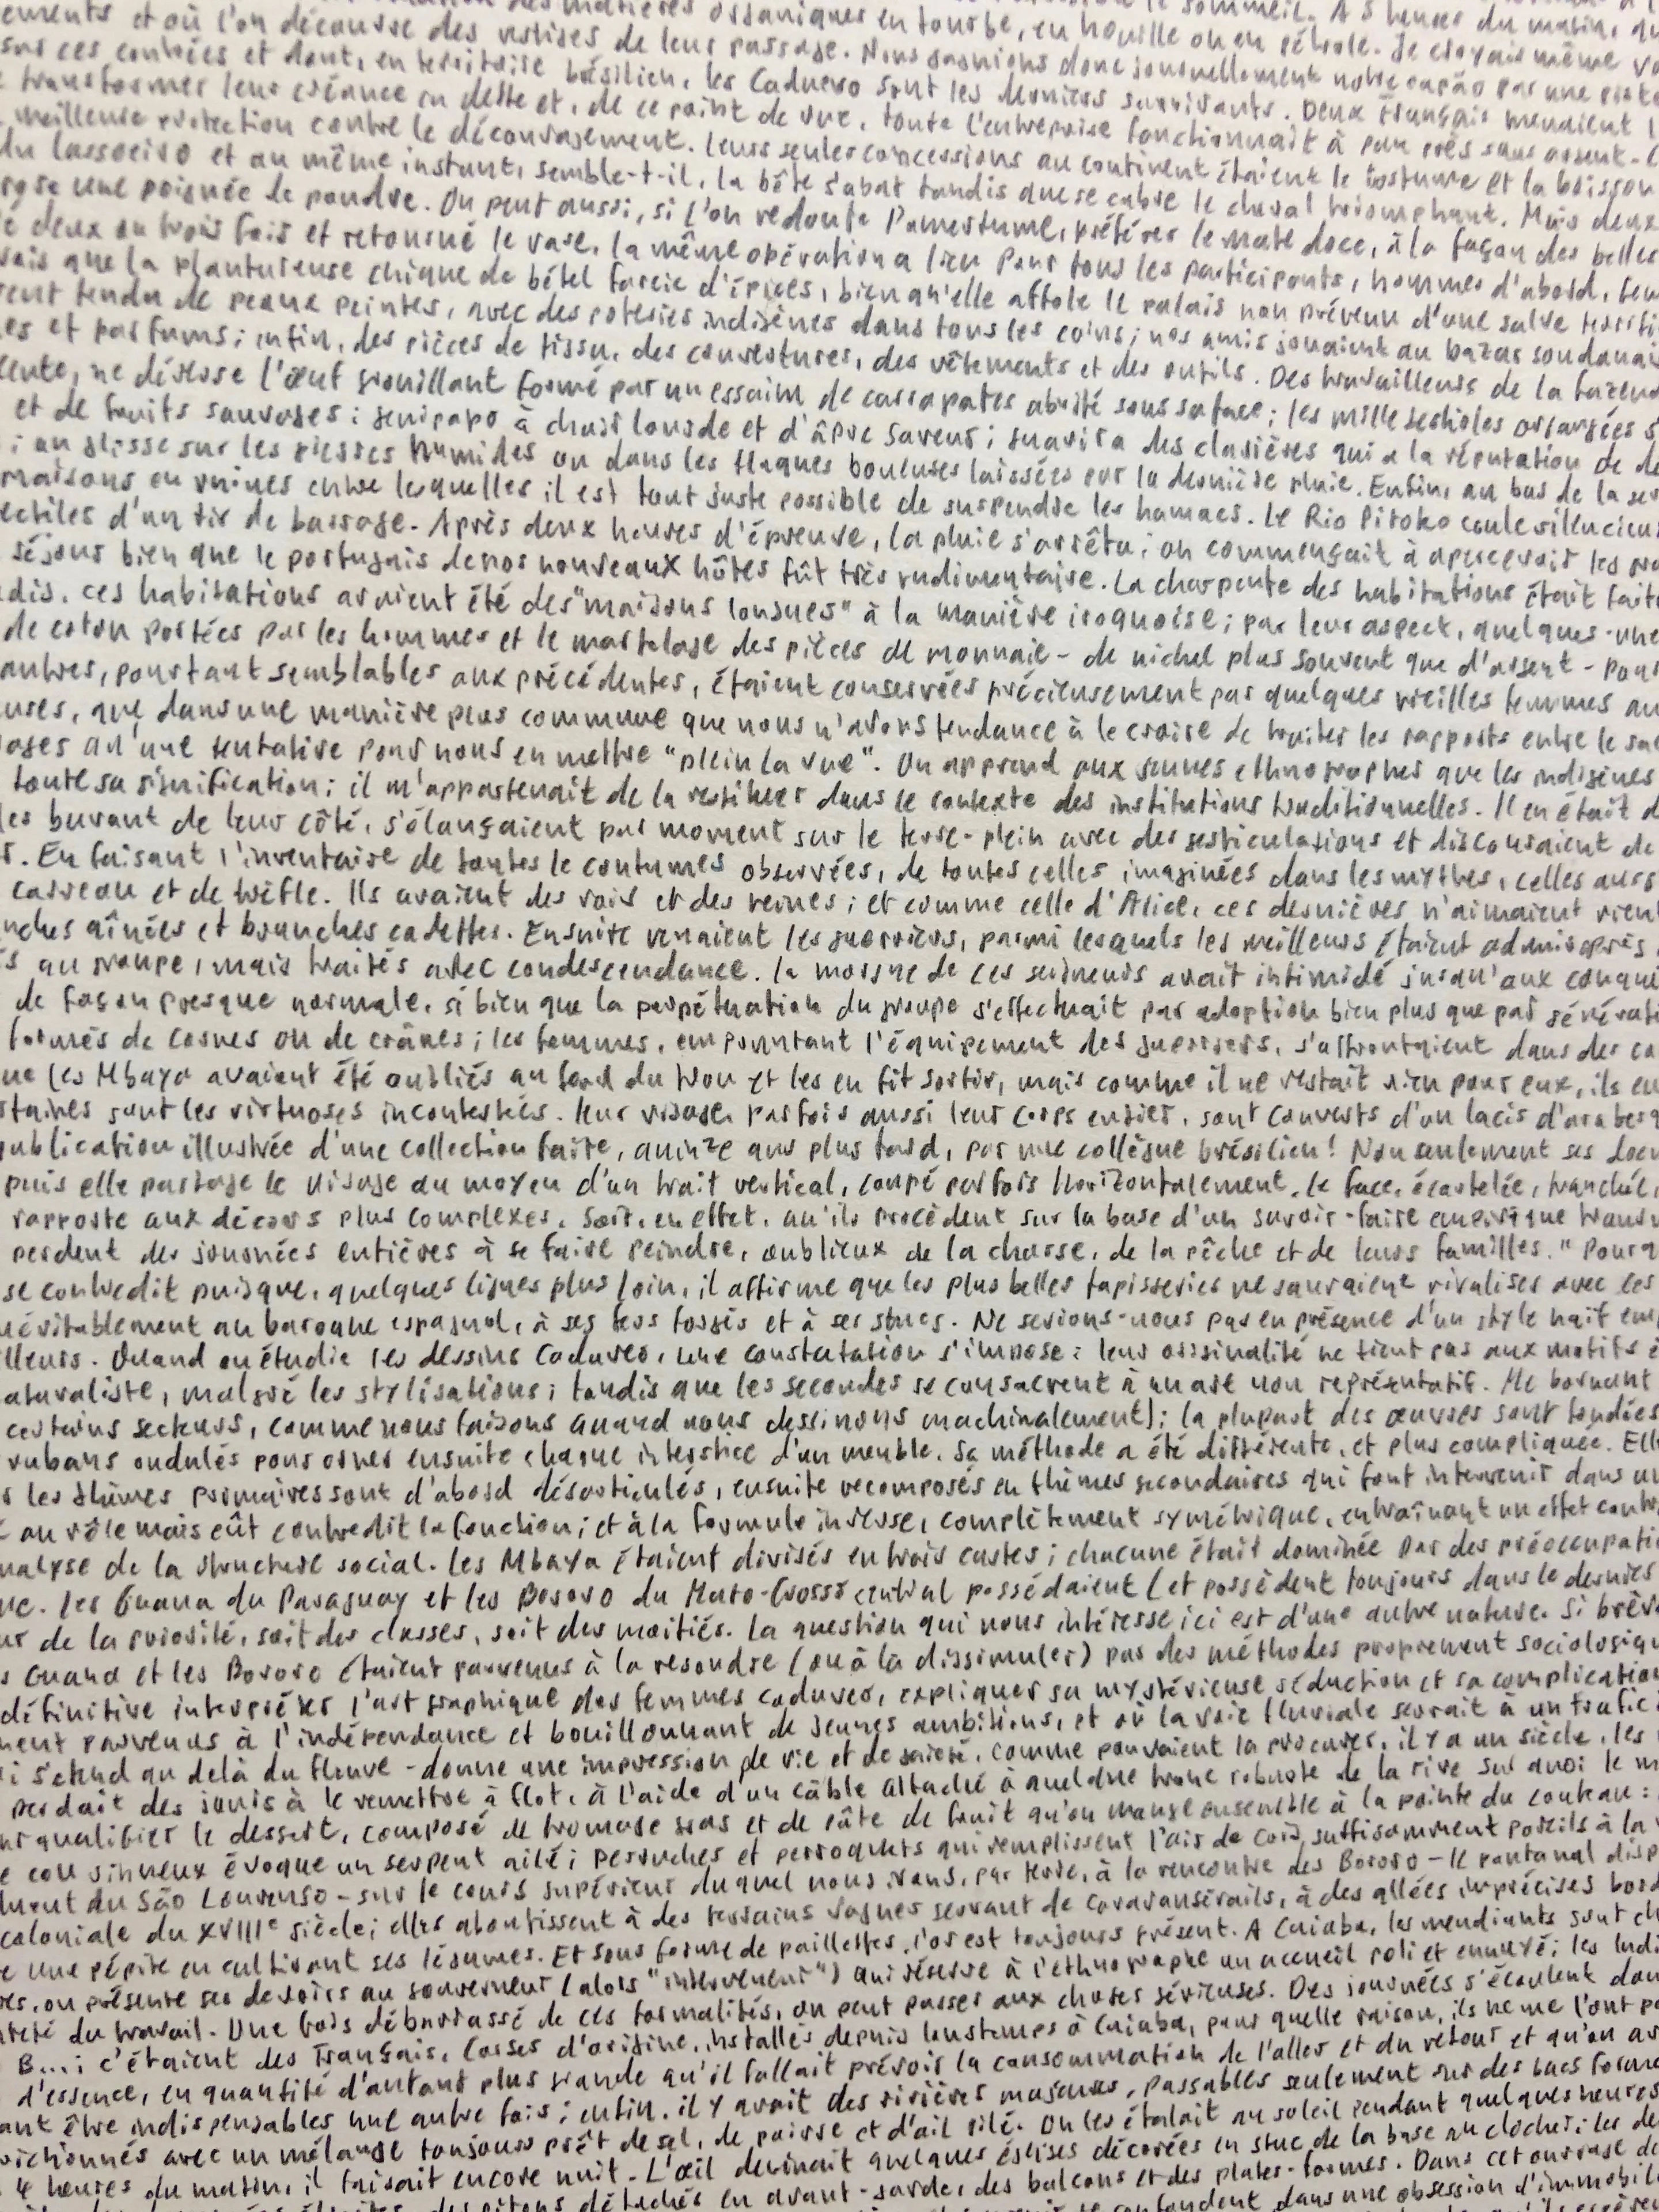 des matières organiques en tourbe, en houille ou en pétrole. Je croyais même
ements et où l'on découvre des vestiges de leur passage. Nous gagnions donc journellement notre capão par une
sur ces contrées et dont, en territoire brésilien, les Caduveo sont les derniers survivants. Deux Français menaient
transformer leur créance en dette et, de ce point de vue, toute l'entreprise fonctionnait à peu près sans argent.
meilleure protection contre le découragement. Leurs seules concessions au continent étaient le costume et la boisson
du lasso et au même instant, semble-t-il, la bête s'abat tandis que se cabre le cheval triomphant. Mais deux
une poignée de poudre. On peut aussi, si l'on redoute l'amertume, préférer le mate doce, à la façon des belles
deux ou trois fois et retourné le vase, la même opération a lieu pour tous les participants, hommes d'abord,
vais que la plantureuse chique de bétel farcie d'épices, bien qu'elle affole le palais non prévenu d'une salve
rent tendu de peaux peintes, avec des poteries indigènes dans tous les coins; nos amis jouaient au bazar soudanais
es et parfums; enfin, des pièces de tissu, des couvertures, des vêtements et des outils. Des travailleurs de la
lente, ne dépose l'œuf grouillant formé par un essaim de carrapates abrité sous sa face; les mille gestioles orangées
et de fruits sauvages: genipapo à chair lourde et d'âpre saveur; guavira des clairières qui a la réputation de
; on glisse sur les pierres humides ou dans les flaques boueuses laissées par la dernière pluie. Enfin, au bas de la
maisons en ruines entre lesquelles il est tout juste possible de suspendre les hamacs. Le Rio Pitoko coule
ectiles d'un tir de barrage. Après deux heures d'épreuve, la pluie s'arrêta; on commençait à apercevoir les
séjour bien que le portugais de nos nouveaux hôtes fût très rudimentaire. La charpente des habitations était
dis, ces habitations avaient été des "maisons longues" à la manière iroquoise; par leur aspect, quelques-une
de coton portées par les hommes et le martelage des pièces de monnaie - de nickel plus souvent que d'argent - pour
autres, pourtant semblables aux précédentes, étaient conservées précieusement par quelques vieilles femmes
uses, que dans une manière plus commune que nous n'avons tendance à le croire de traiter les rapports entre le
qu'une tentative pour nous en mettre "plein la vue". On apprend aux jeunes ethnographes que les indigènes
toute sa signification; il m'appartenait de la restituer dans le contexte des institutions traditionnelles. Il en était
les buvant de leur côté, s'élançaient par moment sur le terre-plein avec des gesticulations et discouraient de
. En faisant l'inventaire de toutes le coutumes observées, de toutes celles imaginées dans les mythes, celles
carreau et de trèfle. Ils avaient des rois et des reines; et comme celle d'Alice, ces dernières n'aimaient
nches aînées et branches cadettes. Ensuite venaient les guerriers, parmi lesquels les meilleurs étaient admis après
au groupe, mais traités avec condescendance. La morgue de ces seigneurs avait intimidé jusqu'aux
de façon presque normale, si bien que la perpétuation du groupe s'effectuait par adoption bien plus que par
formés de cornes ou de crânes; les femmes, empruntant l'équipement des guerriers, s'affrontaient dans des
ue les Mbaya avaient été oubliés au fond du trou et les en fit sortir, mais comme il ne restait rien pour eux, ils
sont les virtuoses incontestées. Leur visage, parfois aussi leur corps entier, sont couverts d'un lacis
publication illustrée d'une collection faite, quinze ans plus tard, par une collègue brésilien! Non seulement ses
puis elle partage le visage au moyen d'un trait vertical, coupé parfois horizontalement. la face, écartelée, tranchée,
rapporte aux décors plus complexes. Soit, en effet, qu'ils procèdent sur la base d'un savoir-faire empirique
perdent des journées entières à se faire peindre, oublieux de la chasse, de la pêche et de leurs familles."
se contredit puisque, quelques lignes plus loin, il affirme que les plus belles tapisseries ne sauraient rivaliser avec
inévitablement au baroque espagnol, à ses fers forgés et à ses stucs. Ne serions-nous pas en présence d'un style naïf
illeurs. Quand on étudie les dessins caduveo, une constatation s'impose: leur originalité ne tient pas aux motifs
aturaliste, malgré les stylisations; tandis que les secondes se consacrent à un art non représentatif. Me bornant
certains secteurs, comme nous faisons quand nous dessinons machinalement); la plupart des œuvres sont fondées
rubans ondulés pour orner ensuite chaque interstice d'un meuble. Sa méthode a été différente, et plus compliquée.
les thèmes primaires sont d'abord désarticulés, ensuite recomposés en thèmes secondaires qui font intervenir dans
au rôle mais eût contredit la fonction; et à la formule inverse, complètement symétrique, entraînant un effet
nalyse de la structure social. Les Mbaya étaient divisés en trois castes; chacune était dominée par des
. les Guana du Paraguay et les Bororo du Mato-Grosso central possédaient (et possèdent toujours dans le dernier
ur de la priorité, soit des classes, soit des moitiés. La question qui nous intéresse ici est d'une autre nature. Si
Guana et les Bororo étaient parvenus à la résoudre (ou à la dissimuler) par des méthodes proprement
définitive interpréter l'art graphique des femmes caduveo, expliquer sa mystérieuse séduction et sa complication
ment parvenus à l'indépendance et bouillonnant de jeunes ambitions, et où la voie fluviale servait à un trafic
i s'étend au delà du fleuve - donne une impression de vie et de gaieté, comme pouvaient la procurer, il y a un siècle, les
perdait des jours à le remettre à flot, à l'aide d'un câble attaché à quelque tronc robuste de la rive sur quoi le
ur qualifier le dessert, composé de fromage gras et de pâte de fruit qu'on mange ensemble à la pointe du couteau:
cou sinueux évoque un serpent ailé; perruches et perroquets qui remplissent l'air de cris, suffisamment pareils à la
du São Lourenso - sur le cours supérieur duquel nous irons, par terre, à la rencontre des Bororo - le pantanal
coloniale du XVIIIe siècle; elles aboutissent à des terrains vagues servant de caravansérails, à des allées imprécises
une pépite en cultivant ses légumes. Et sous forme de paillettes, l'or est toujours présent. A Cuiaba, les mendiants sont
on présente ses devoirs au gouverneur (alors "interveneur") qui réserve à l'ethnographe un accueil poli et ennuyé; les
du travail. Une fois débarrassé de ces formalités, on peut passer aux choses sérieuses. Des journées s'écoulent
B...; c'étaient des Français, Corses d'origine, installés depuis longtemps à Cuiaba, pour quelle raison, ils ne me l'ont
d'essence, en quantité d'autant plus grande qu'il fallait prévoir la consommation de l'aller et du retour et qu'on
ant être indispensables une autre fois; enfin, il y avait des rivières majeures, passables seulement sur des bacs
avec un mélange toujours prêt de sel, de poivre et d'ail pilé. On les étalait au soleil pendant quelques heures
4 heures du matin, il faisait encore nuit. L'œil devinait quelques églises décorées en stuc de la base au clocher; les
détachés en avant-garde, des balcons et des plates-formes. Dans cet ouvrage
confondent dans une obsession